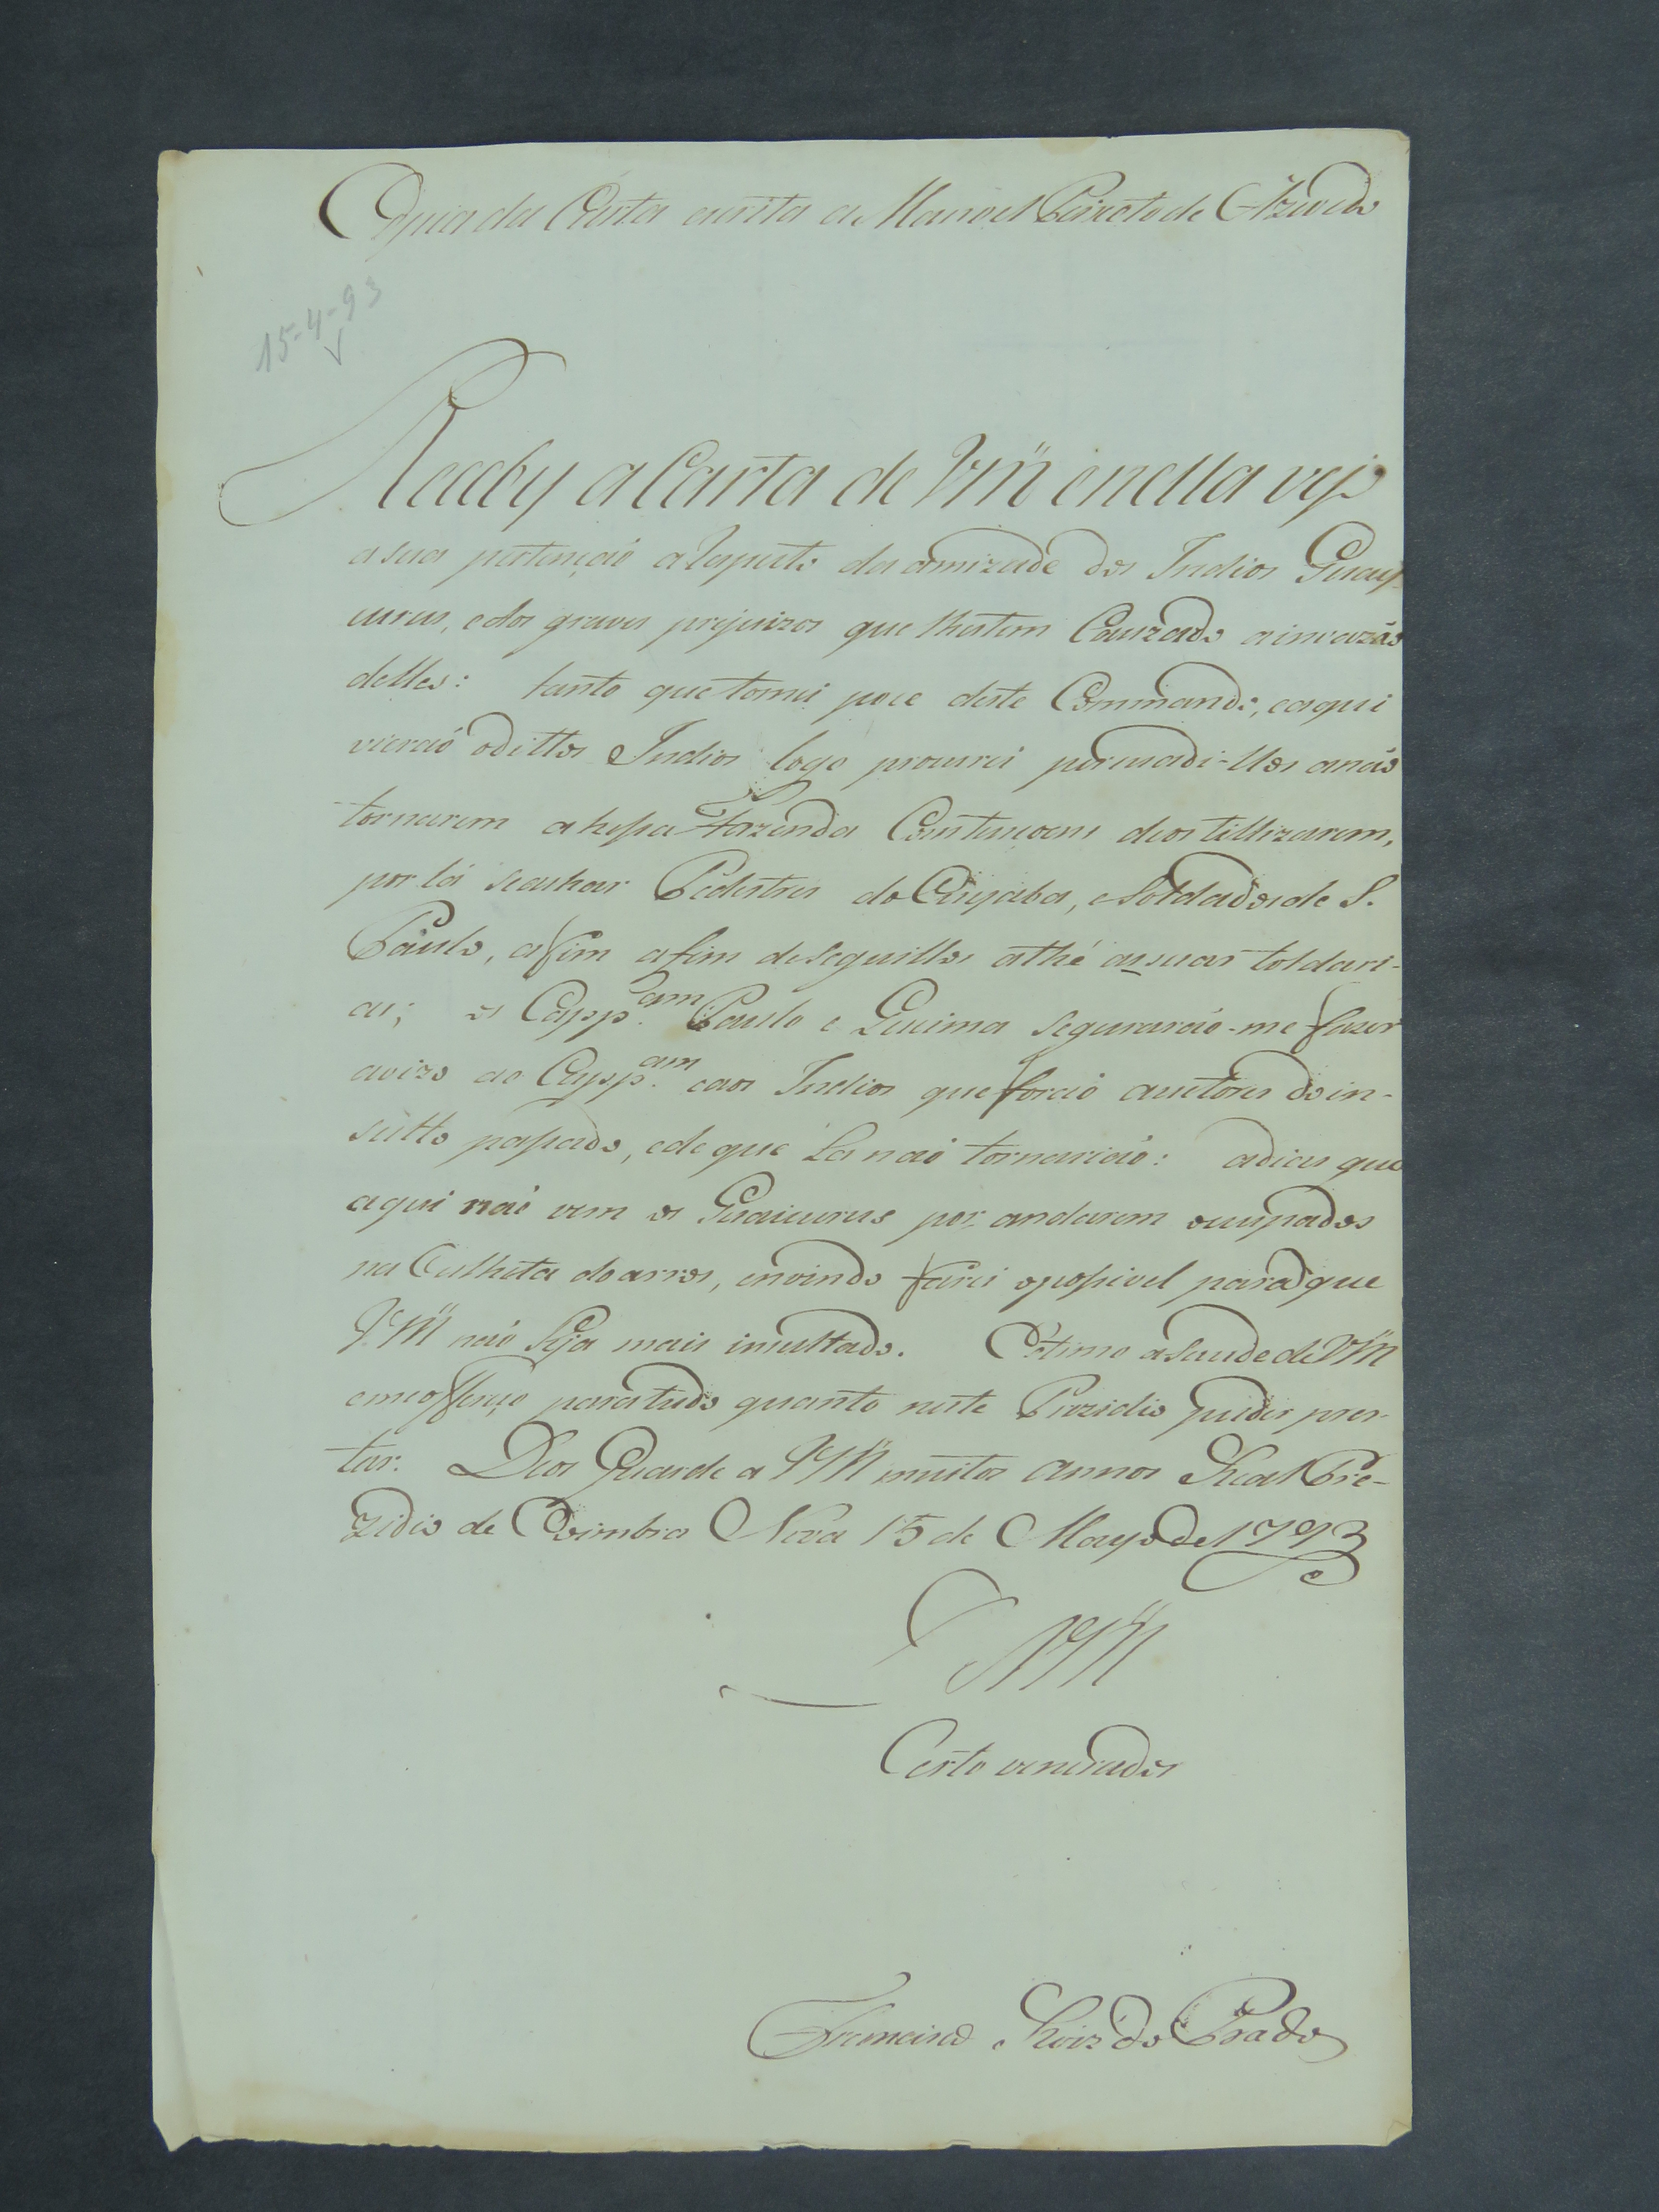 Copia da Carta escrita a Manoel Peixoto de Azevedo
15-4-93
Recebÿ a Carta de VM.ce e nella vejo
a sua pertençaõ a Respeito da amizade dos Indios Guay-
curus, e dos graves prejuizos que lhes tem Cauzado a invazaõ
delles: tanto que tomei poce deste Commando, e aqui
vieraõ o dittos Indios logo procurei persuadi-llos a naõ
tornarem a hessa Fazenda Com tençoens de os tillizarem,
por lá se achar Pedestres do Cuyaba, e Soldados de S.
Paulo, a fim a fim de seguillos athé as suas toldari-
as; os Capp.am Paulo e Queima seguraraõ-me fazer
avizo ao Capp.am e aos Indios que foraõ auctores do in-
sulto passado, e de que La naõ tornariaõ: a dias que
aqui naõ vem os Guaicurus por andarem occupados
na Culheita do arros, em vindo farei o possivel para que
VM.ce naõ Seja mais insultado. Estimo a Saude de VM.ce
e me offereço para tudo quanto neste Prezidio puder pres-
tar. Deos Guarde a VM.ce muitos annos Real Pre-
zidio de Coimbra Nova 15 de Mayo de 1793
D VM.ce
Certo venerador
Francisco Roiz do Prado